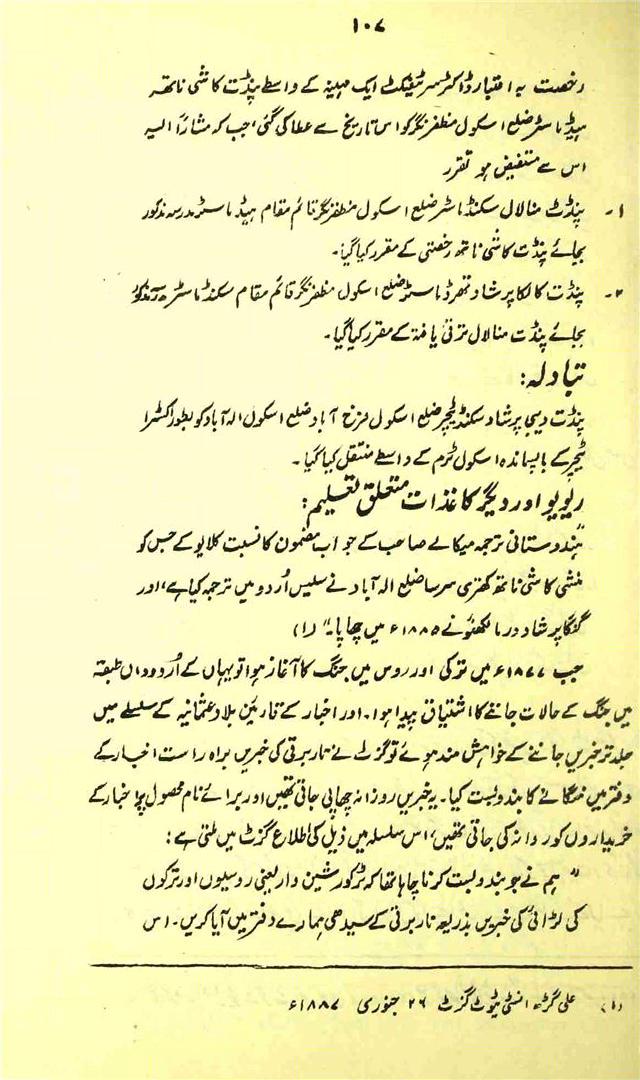 ۱۰۷
رخصت بہ اعتبار ڈاکٹر سرٹیفکٹ ایک مہینہ کے واسطے پنڈت کاشی ناتھ
ہیڈ ماسٹر ضلع اسکول مظفر نگر کو اس تاریخ سے عطا کی گئی، جب کہ مشارٌ الیہ
اس سے مستفیض ہو تقرر
۱۔ پنڈت منالال سکنڈ ماسٹر ضلع اسکول مظفر نگر قائم مقام ہیڈ ماسٹر مدرسہ مذکور
بجائے پنڈت کاشی ناتھ رخصتی کے مقرر کیا گیا۔
۲۔ پنڈت کالکا پرشاد تھرڈ ماسٹر ضلع اسکول مظفر نگر قائم مقام سکنڈ ماسٹر مدرسہ مذکور
بجائے پنڈت منالال ترقی یافتہ کے مقرر کیا گیا۔
تبادلہ:
پنڈت دیبی پرشاد سکنڈ ٹیچر ضلع اسکول فرخ آباد ضلع اسکول الہ آباد کو بطور اکسٹرا
ٹیچر کے باپسماندہ اسکول ٹرم کے واسطے منتقل کیا گیا۔
ریویو اور دیگر کاغذات متعلق تعلیم:
"ہندوستانی ترجمہ میکالے صاحب کے جواب مضمون کا نسبت کلایو کے جس کو
منشی کاشی ناتھ کھتری سرسا ضلع الہ آباد نے سلیس اُردو میں ترجمہ کیا ہے، اور
گنگا پرشاد ورما لکھنؤ نے ۱۸۸۵ء میں چھاپا۔" (۱)
جب ۱۸۷۷ء میں ترکی اور روس میں جنگ کا آغاز ہوا تو یہاں کے اُردو داں طبقہ
میں جنگ کے حالات جاننے کا اشتیاق پیدا ہوا۔ اور اخبار کے قارئین بلاد عثمانیہ کے سلسلے میں
جلد تر خبریں جاننے کے خواہش مند ہوئے تو گزٹ نے تار برقی کی خبریں براہ راست اخبار کے
دفتر میں منگانے کا بندوبست کیا۔ یہ خبریں روزانہ چھاپی جاتی تھیں اور برائے نام محصول پر اخبار کے
خریداروں کو روانہ کی جاتی تھیں، اس سلسلہ میں ذیل کی اطلاع گزٹ میں ملتی ہے:
"ہم نے جو بندوبست کرنا چاہا تھا کہ ٹرکو رشین وار یعنی روسیوں اور ترکوں
کی لڑائی کی خبریں بذریعہ تار برقی کے سیدھی ہمارے دفتر میں آیا کریں۔ اس
(۱) علی گڑھ انسٹی ٹیوٹ گزٹ ۲۶ جنوری ۱۸۸۷ء